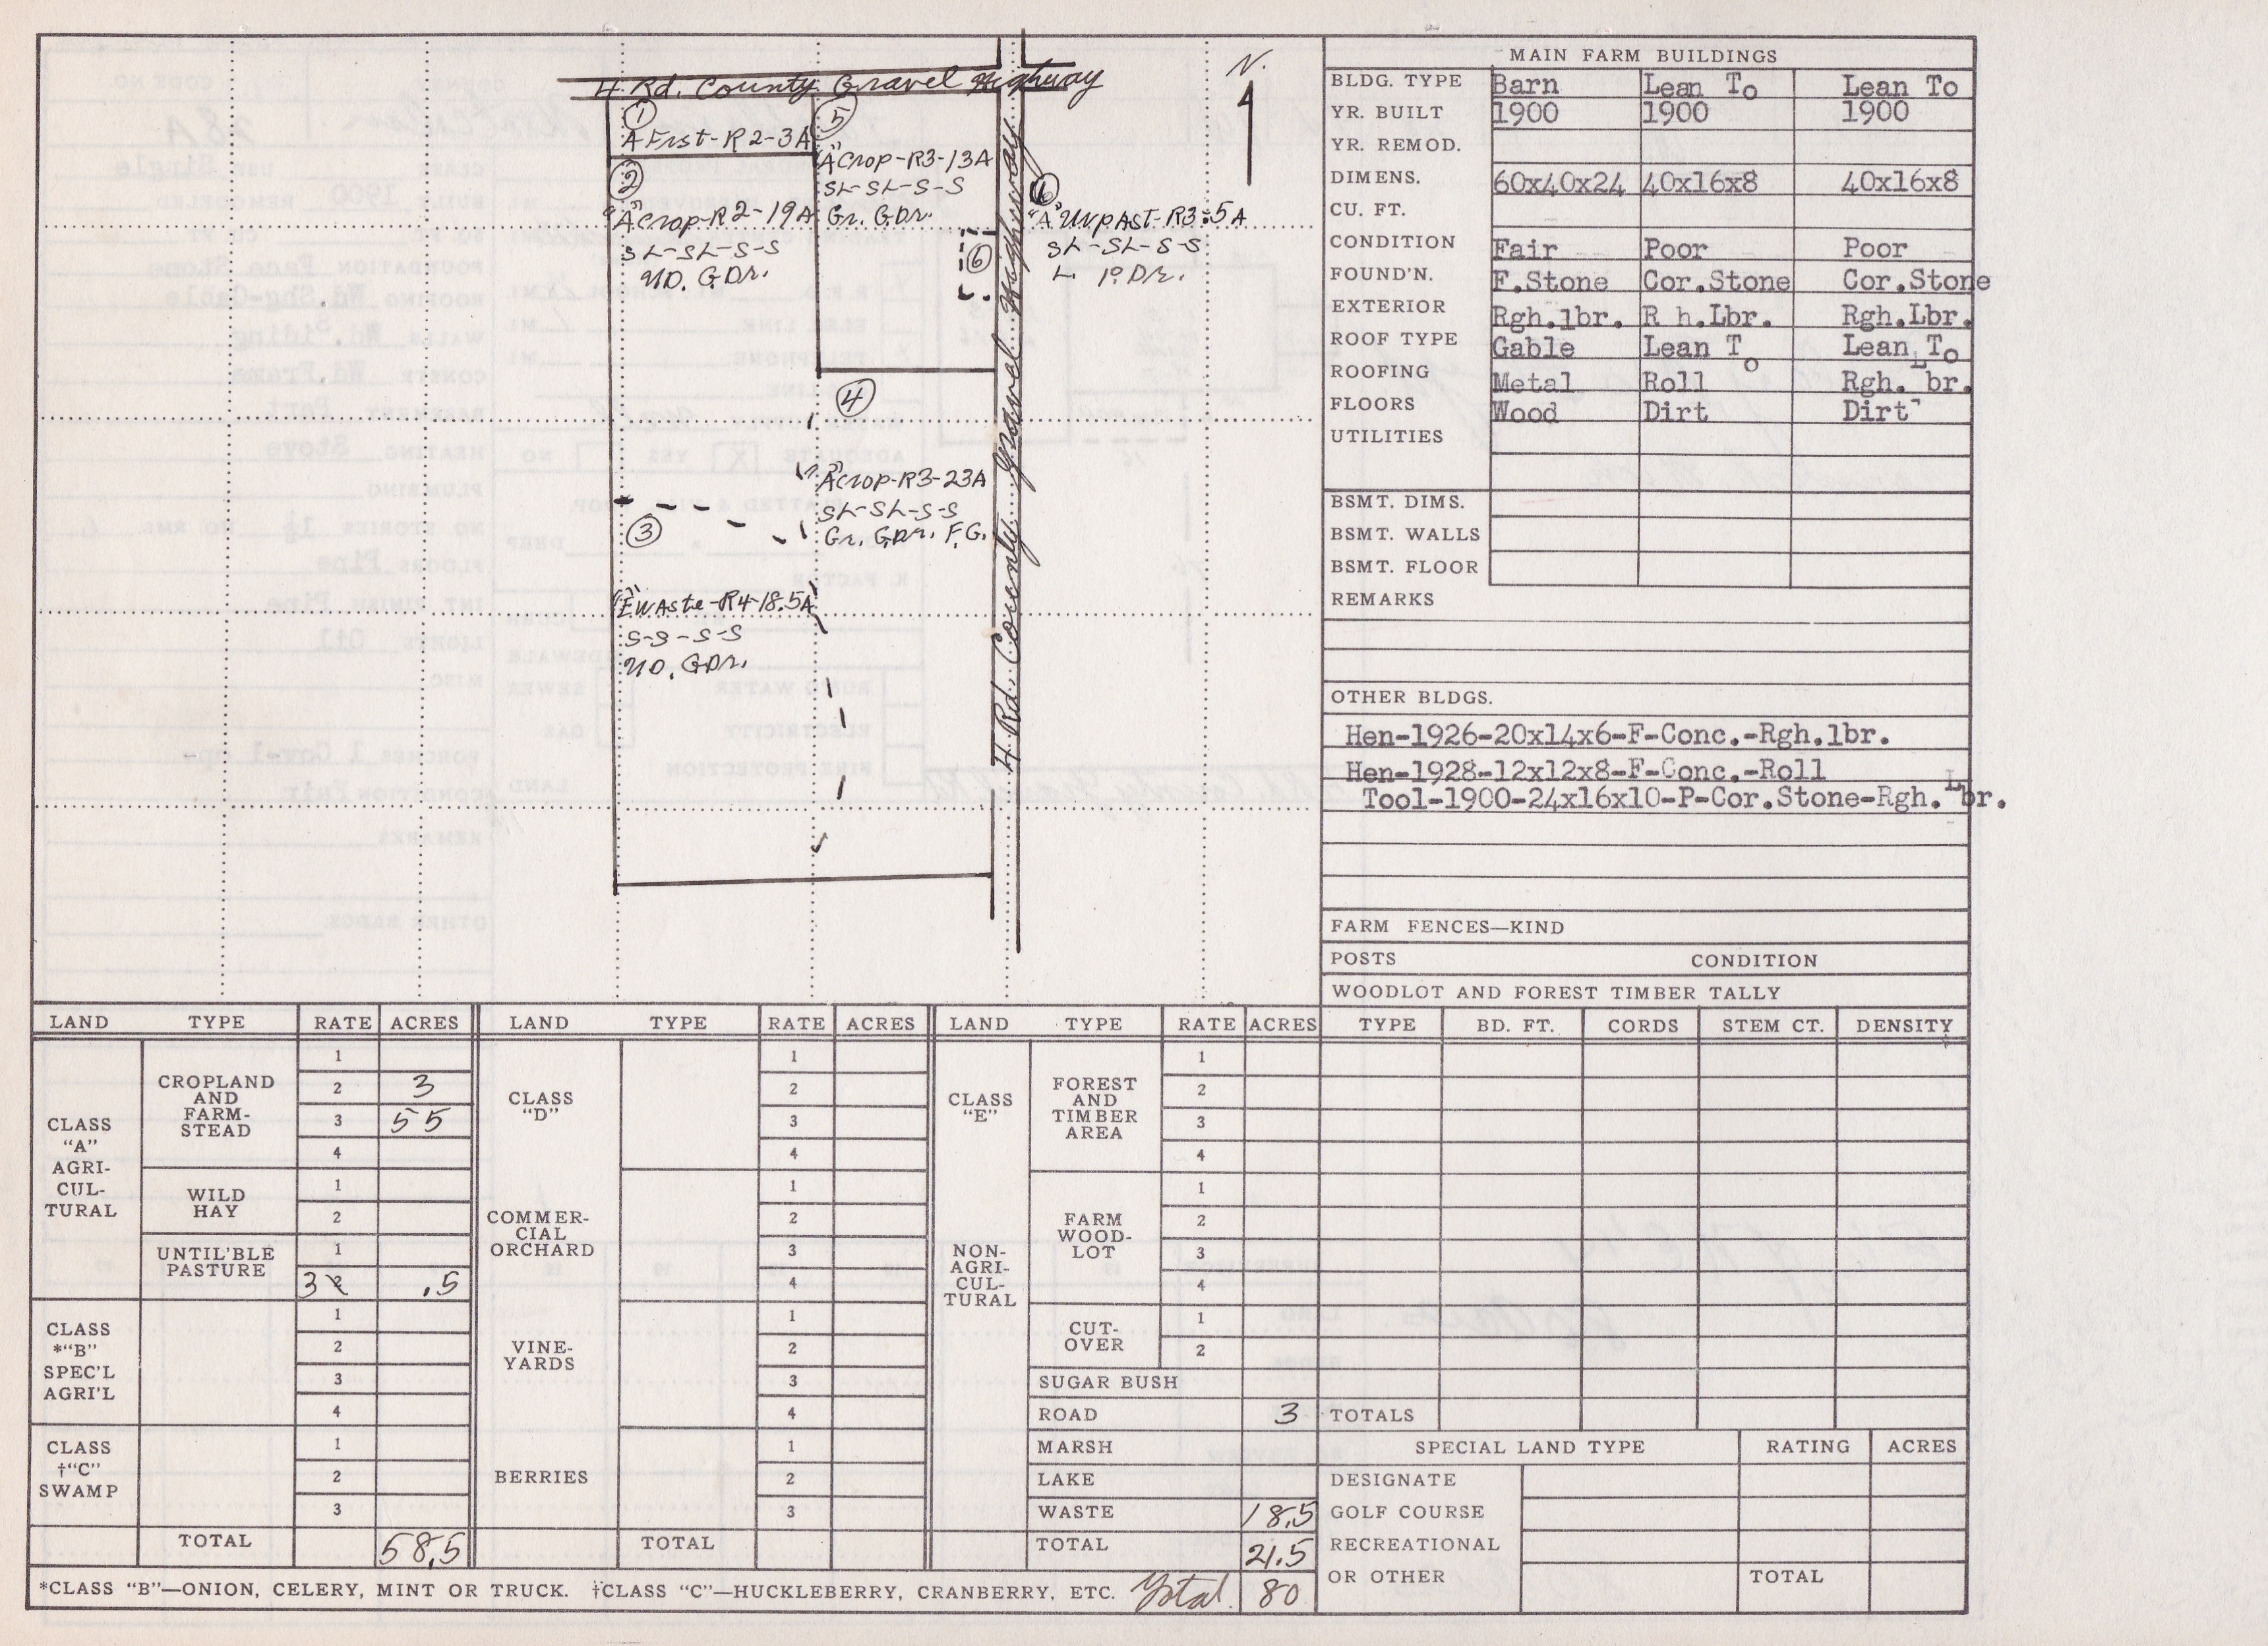 4 Rd. County Gravel Highway
N.
①
A Frst-R2-3A
②
"A" Crop-R2-19A
SL-SL-S-S
NO. G.Dr.
⑤
"A" Crop-R3-13A
SL-SL-S-S
Gr. G.Dr.
⑥
⑥
"A" Unpast-R3-.5A
SL-SL-S-S
L. P.Dr.
④
"A" Crop-R3-23A
SL-SL-S-S
Gr. G.Dr. F.G.
③
"E" Waste-R4-18.5A
S-S-S-S
NO. G.Dr.
4 Rd. County Gravel Highway
MAIN FARM BUILDINGS
BLDG. TYPE Barn Lean To Lean To
YR. BUILT 1900 1900 1900
YR. REMOD.
DIMENS. 60x40x24 40x16x8 40x16x8
CU. FT.
CONDITION Fair Poor Poor
FOUND'N. F.Stone Cor.Stone Cor.Stone
EXTERIOR Rgh.lbr. R h.Lbr. Rgh.Lbr.
ROOF TYPE Gable Lean To Lean To
ROOFING Metal Roll Rgh. Lbr.
FLOORS Wood Dirt Dirt
UTILITIES
BSMT. DIMS.
BSMT. WALLS
BSMT. FLOOR
REMARKS
OTHER BLDGS.
Hen-1926-20x14x6-F-Conc.-Rgh.lbr.
Hen-1928-12x12x8-F-Conc.-Roll
Tool-1900-24x16x10-P-Cor.Stone-Rgh.Lbr.
FARM FENCES—KIND
POSTS CONDITION
WOODLOT AND FOREST TIMBER TALLY
TYPE BD. FT. CORDS STEM CT. DENSITY
TOTALS
SPECIAL LAND TYPE RATING ACRES
DESIGNATE
GOLF COURSE
RECREATIONAL
OR OTHER TOTAL
LAND TYPE RATE ACRES
CLASS
"A"
AGRI-
CUL-
TURAL
CROPLAND
AND
FARM-
STEAD
1
2 3
3 55
4
WILD
HAY
1
2
UNTIL'BLE
PASTURE
1
3 2 .5
CLASS
*"B"
SPEC'L
AGRI'L
1
2
3
4
CLASS
†"C"
SWAMP
1
2
3
TOTAL 58.5
LAND TYPE RATE ACRES
CLASS
"D"
1
2
3
4
COMMER-
CIAL
ORCHARD
1
2
3
4
VINE-
YARDS
1
2
3
4
BERRIES
1
2
3
TOTAL
LAND TYPE RATE ACRES
CLASS
"E"
NON-
AGRI-
CUL-
TURAL
FOREST
AND
TIMBER
AREA
1
2
3
4
FARM
WOOD-
LOT
1
2
3
4
CUT-
OVER
1
2
SUGAR BUSH
ROAD 3
MARSH
LAKE
WASTE 18.5
TOTAL 21.5
*CLASS "B"—ONION, CELERY, MINT OR TRUCK. †CLASS "C"—HUCKLEBERRY, CRANBERRY, ETC. Total 80